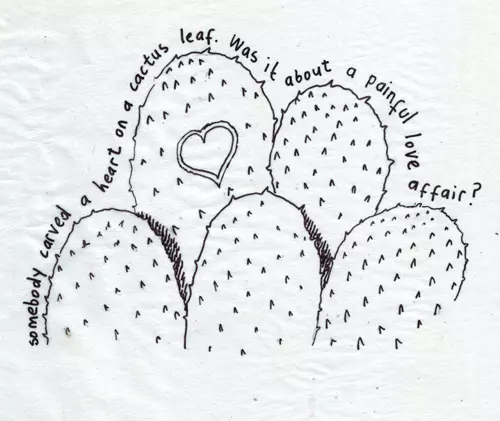 somebody carved a heart on a cactus leaf. Was it about a painful love affair?